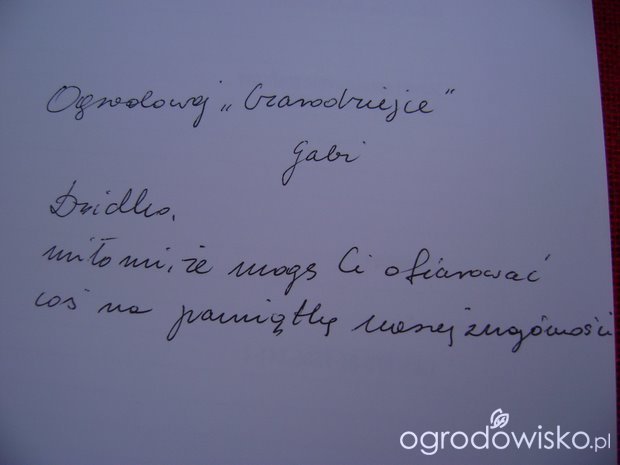 Ogrodowej „Czarodziejce”
Gabi
Dzidko,
miło mi, że mogę Ci ofiarować
coś na pamiątkę naszej znajomości
ogrodowisko.pl